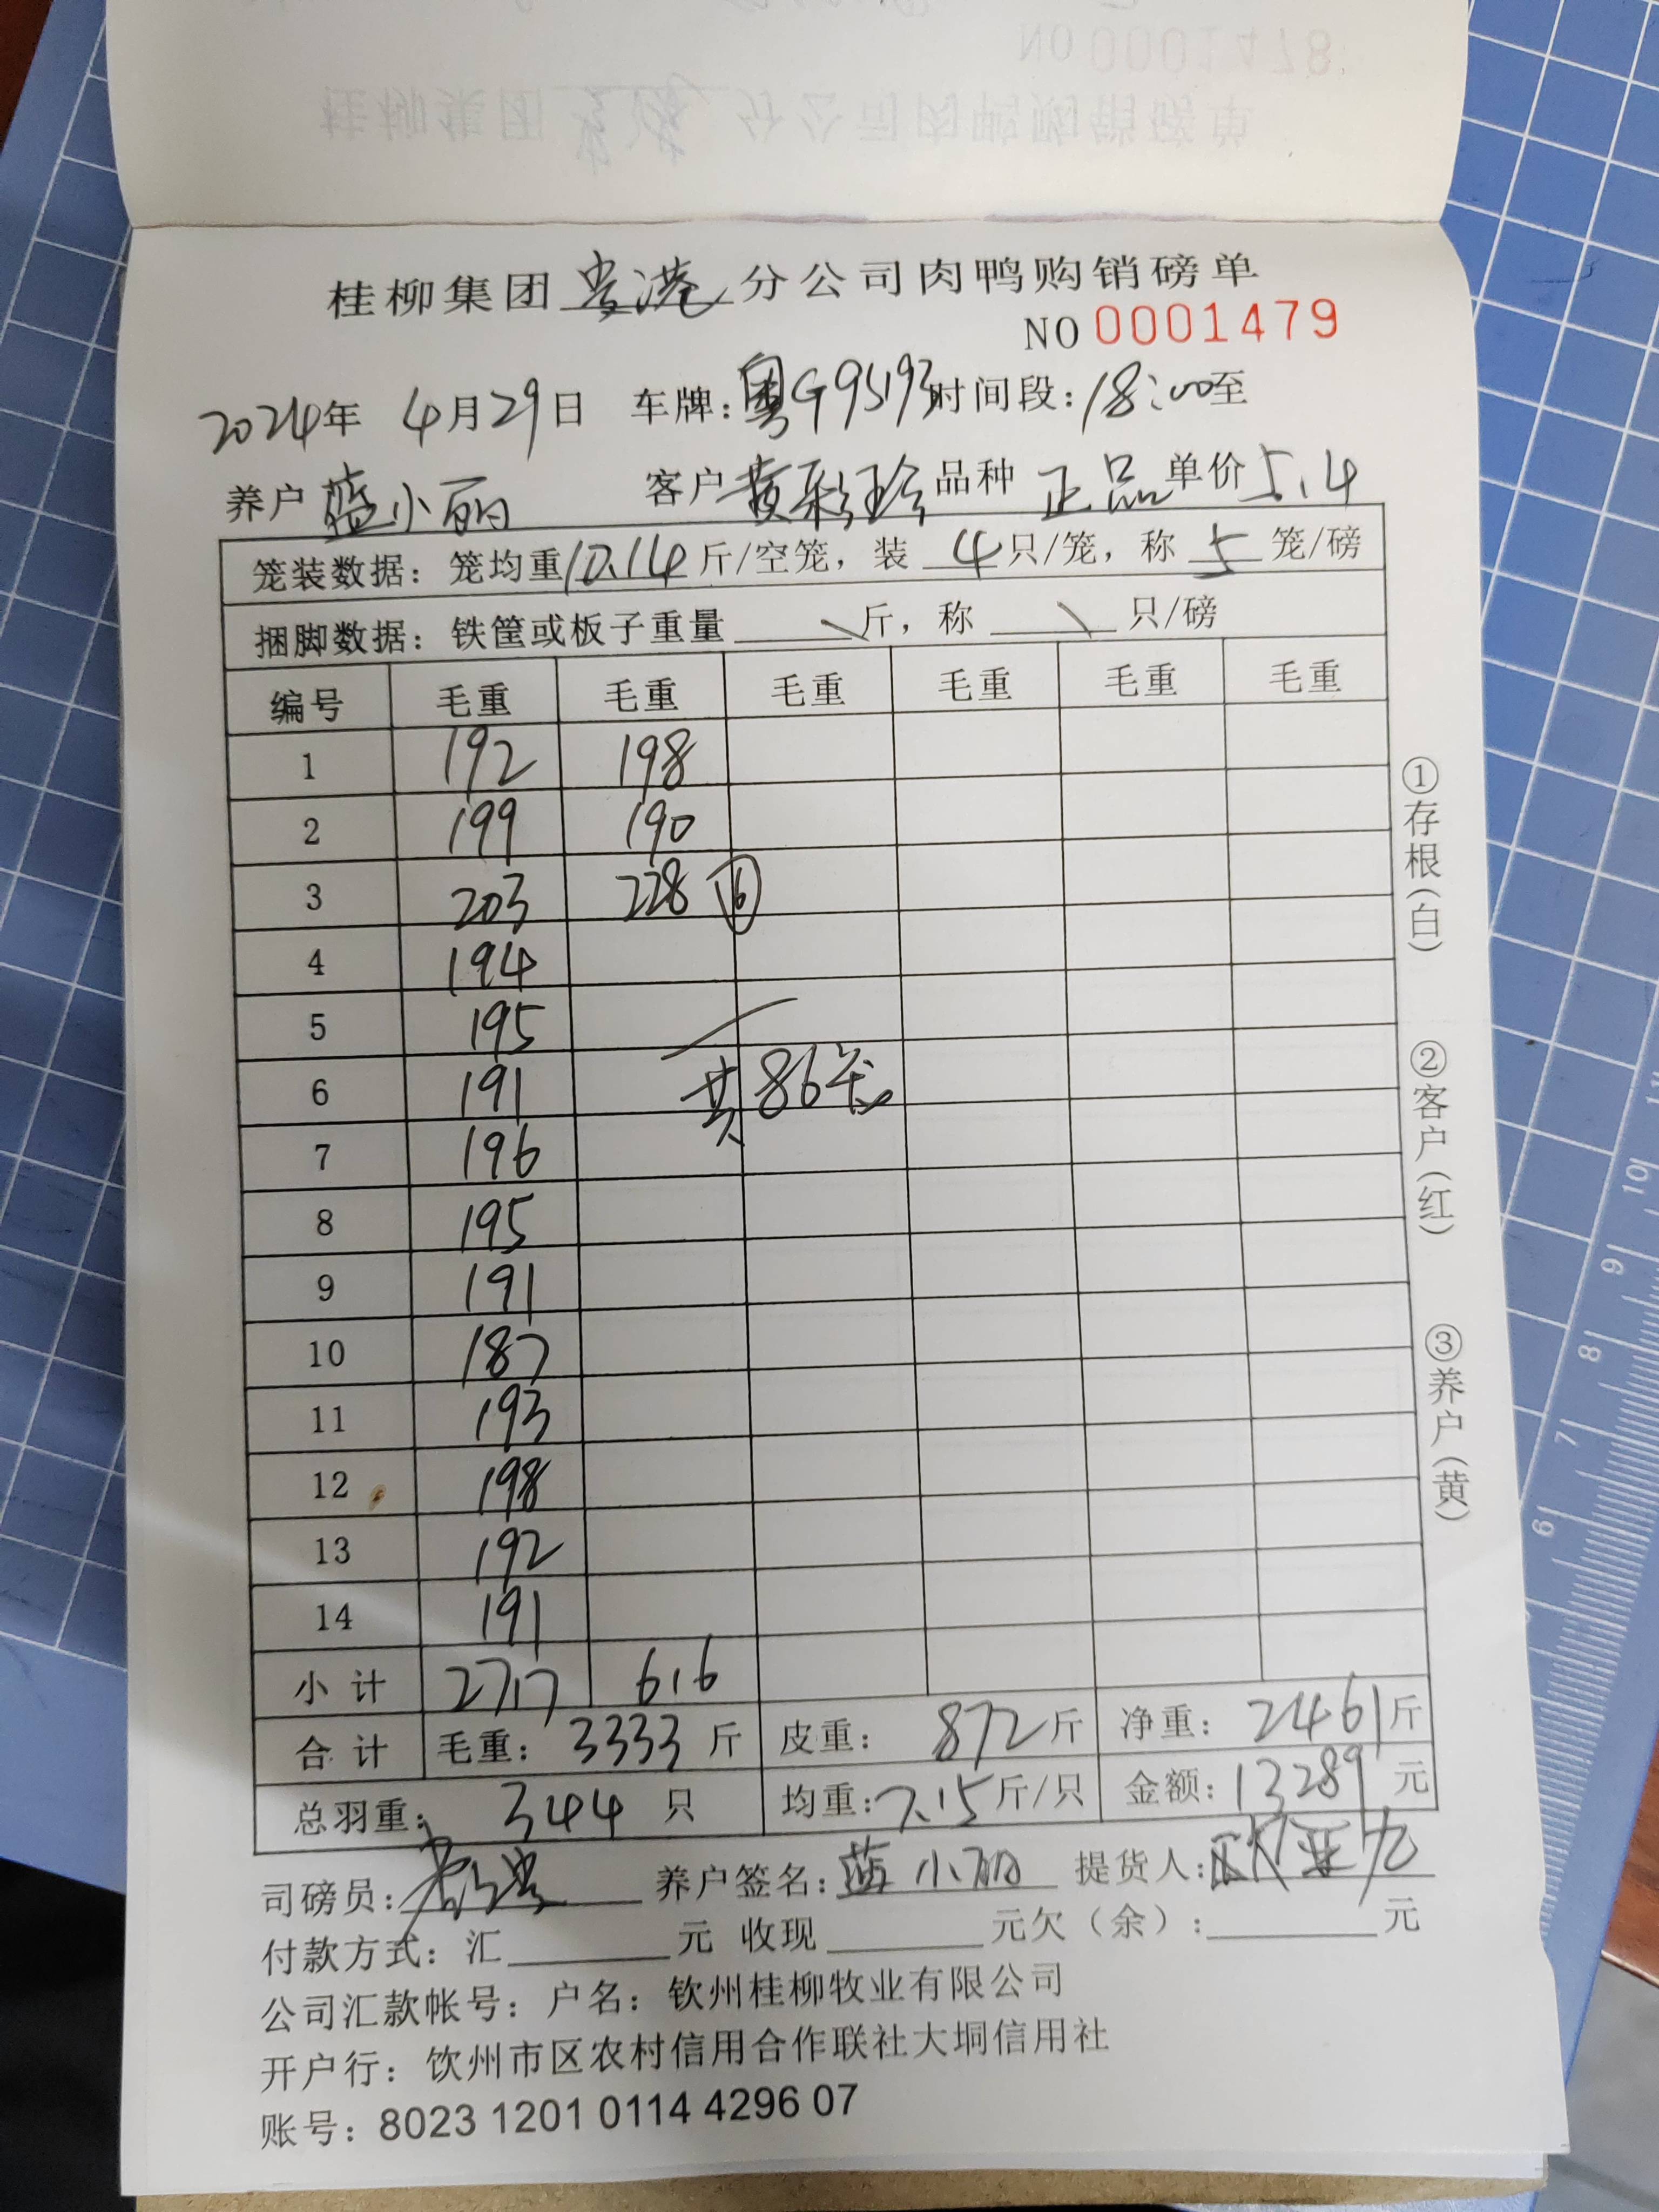 NO 0001478
桂柳集团贵港分公司肉鸭购销磅单
桂柳集团贵港分公司肉鸭购销磅单
NO 0001479
2024年 4月29日 车牌:粤G95193时间段:18:00至
养户 蓝小丽 客户 黄彩珍 品种 正品 单价5.4
笼装数据: 笼均重10.14斤/空笼, 装 4只/笼, 称 5 笼/磅
捆脚数据: 铁筐或板子重量 \斤, 称 \ 只/磅
编号 毛重 毛重 毛重 毛重 毛重 毛重
1 192 198
2 199 190
3 203 228 ⑥
4 194
5 195
6 191 共86笼
7 196
8 195
9 191
10 187
11 193
12 198
13 192
14 191
小计 2717 616
合计 毛重: 3333 斤 皮重: 872斤 净重: 2461斤
总羽重: 344 只 均重:7.15斤/只 金额:13289 元
司磅员: 养户签名:蓝小丽 提货人:
付款方式: 汇 元 收现 元欠(余): 元
公司汇款帐号: 户名: 钦州桂柳牧业有限公司
开户行: 钦州市区农村信用合作联社大垌信用社
账号: 8023 1201 0114 4296 07
①存根(白)
②客户(红)
③养户(黄)
11
10
9
8
7
6